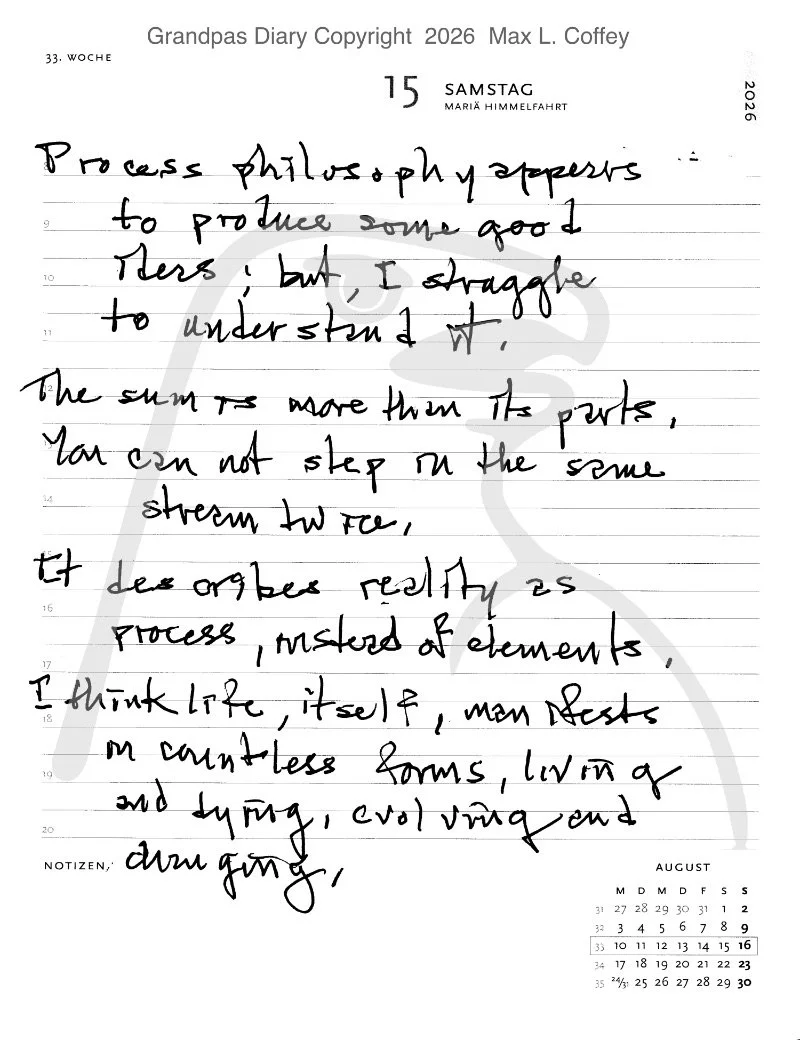 Grandpas Diary Copyright 2026 Max L. Coffey
33. WOCHE
15 SAMSTAG
MARIÄ HIMMELFAHRT
2026
Process philosophy appears
to produce some good
Ideas; but, I struggle
to understand it.
The sum is more than its parts.
You can not step in the same
stream twice.
It describes reality as
process, instead of elements.
I think life, itself, manifests
in countless forms, living
and dying, evolving and
changing.
8
9
10
11
12
13
14
15
16
17
18
19
20
NOTIZEN
AUGUST
M D M D F S S
31 27 28 29 30 31 1 2
32 3 4 5 6 7 8 9
33 10 11 12 13 14 15 16
34 17 18 19 20 21 22 23
35 24/31 25 26 27 28 29 30